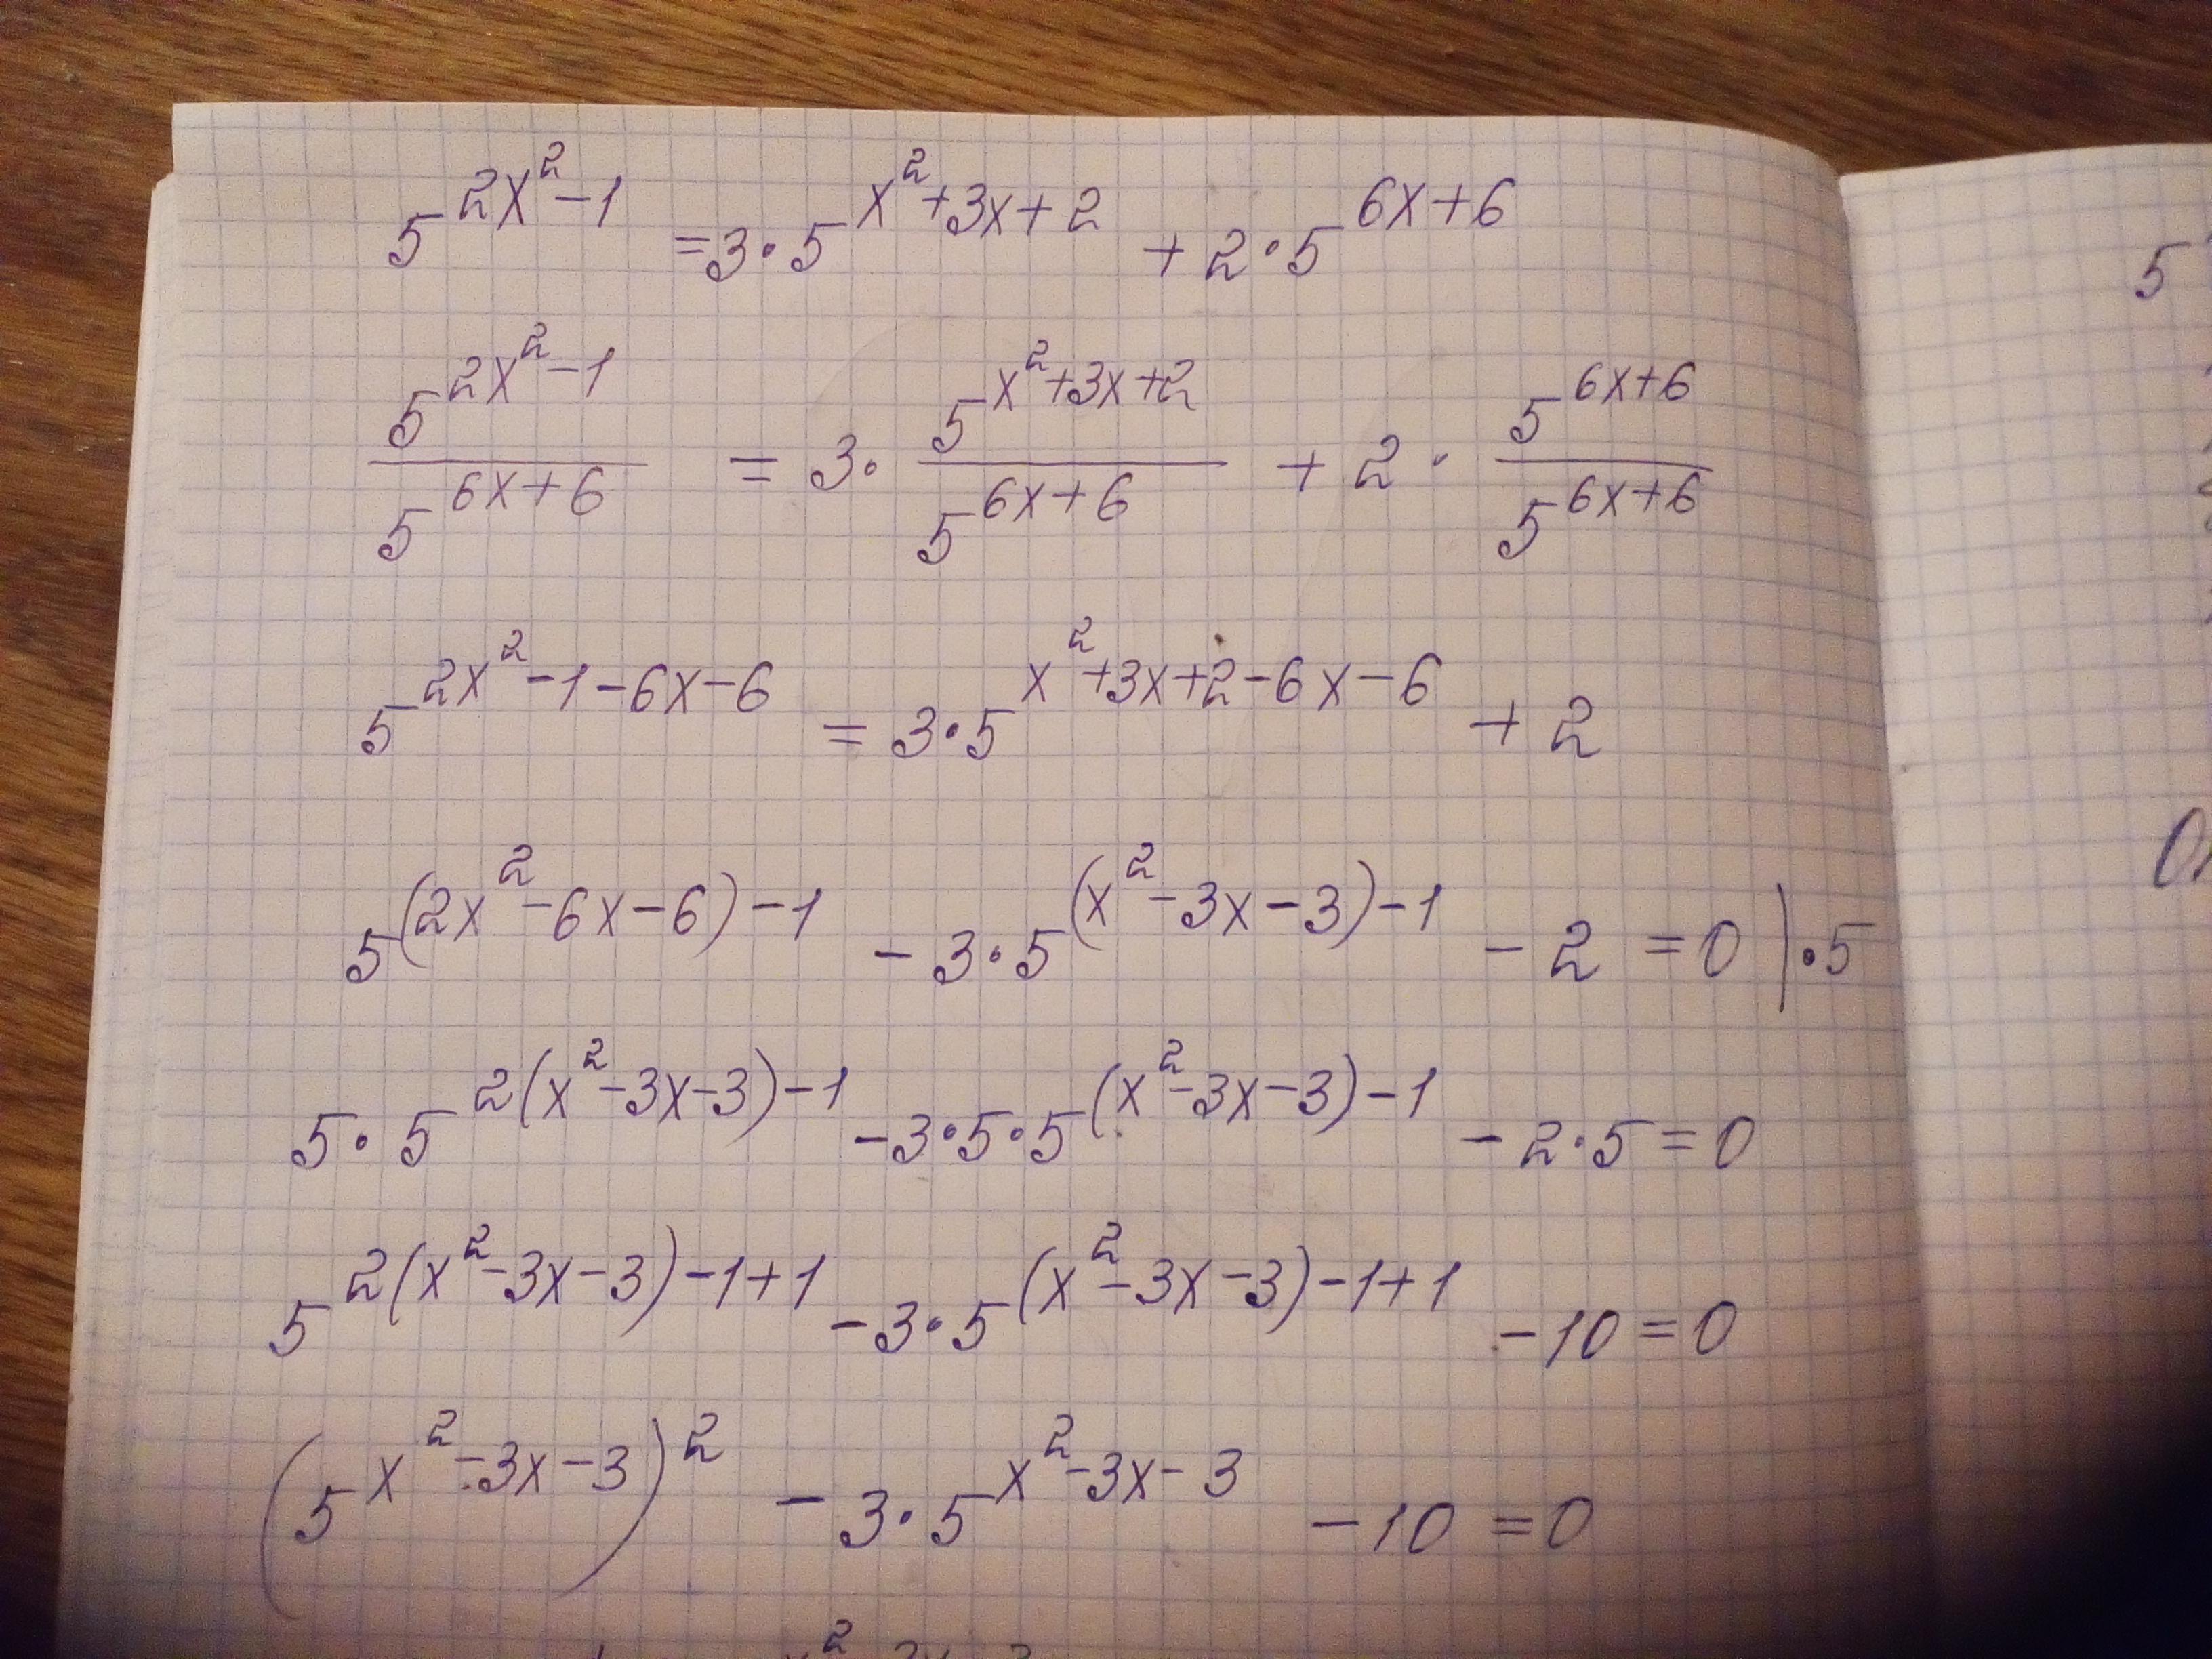 5^{2x^2-1} = 3·5^{x^2+3x+2} + 2·5^{6x+6}
\frac{5^{2x^2-1}}{5^{6x+6}} = 3·\frac{5^{x^2+3x+2}}{5^{6x+6}} + 2·\frac{5^{6x+6}}{5^{6x+6}}
5^{2x^2-1-6x-6} = 3·5^{x^2+3x+2-6x-6} + 2
5^{(2x^2-6x-6)-1} - 3·5^{(x^2-3x-3)-1} - 2 = 0 |·5
5·5^{2(x^2-3x-3)-1} - 3·5·5^{(x^2-3x-3)-1} - 2·5 = 0
5^{2(x^2-3x-3)-1+1} - 3·5^{(x^2-3x-3)-1+1} - 10 = 0
(5^{x^2-3x-3})^2 - 3·5^{x^2-3x-3} - 10 = 0
5